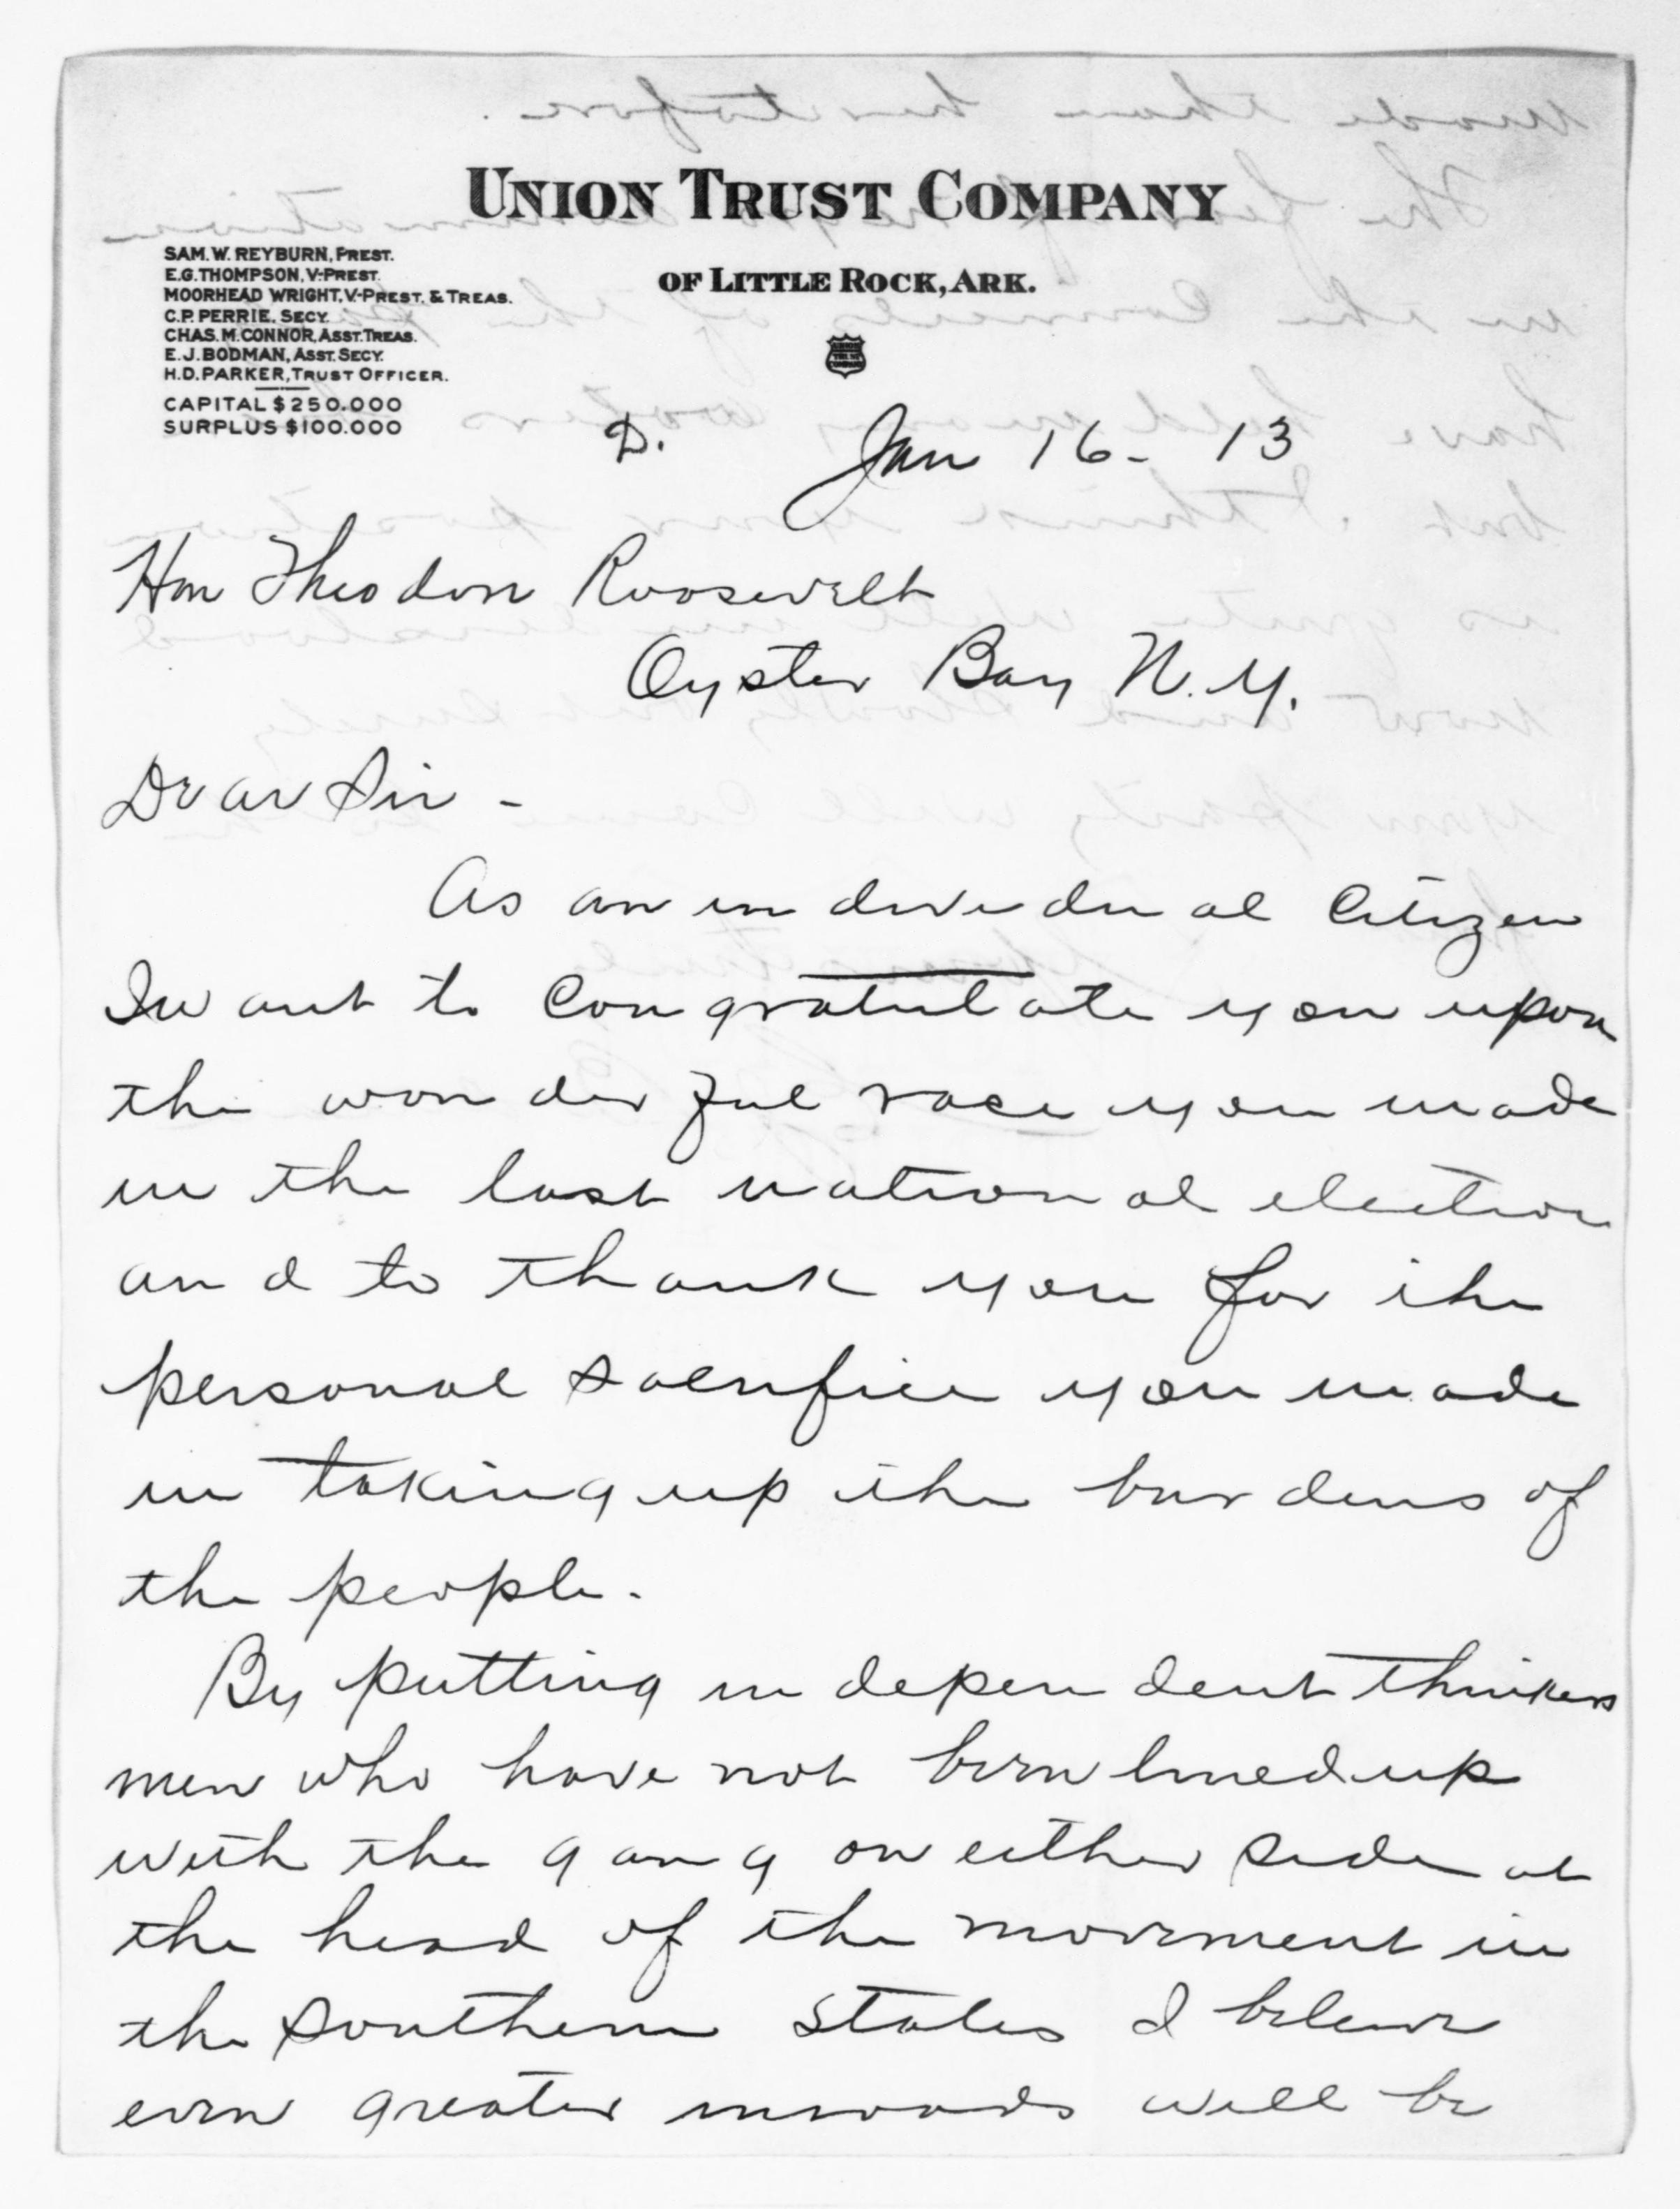 UNION TRUST COMPANY
OF LITTLE ROCK, ARK.
SAM. W. REYBURN, PREST.
E.G. THOMPSON, V-PREST.
MOORHEAD WRIGHT, V-PREST. & TREAS.
C.P. PERRIE, SECY.
CHAS. M. CONNOR, ASST. TREAS.
E.J. BODMAN, ASST. SECY.
H.D. PARKER, TRUST OFFICER.
CAPITAL $250.000
SURPLUS $100.000
UNION TRUST COMPANY
D. Jan 16 - 13
Hon Theodore Roosevelt
Oyster Bay N.Y.
Dear Sir -
As an individual Citizen
I want to Congratulate you upon
the wonderful race you made
in the last national election
and to thank you for the
personal sacrifice you made
in taking up the burdens of
the people.
By putting independent thinkers
men who have not been lined up
with the gang on either side at
the head of the movement in
the southern states I believe
even greater inroads will be